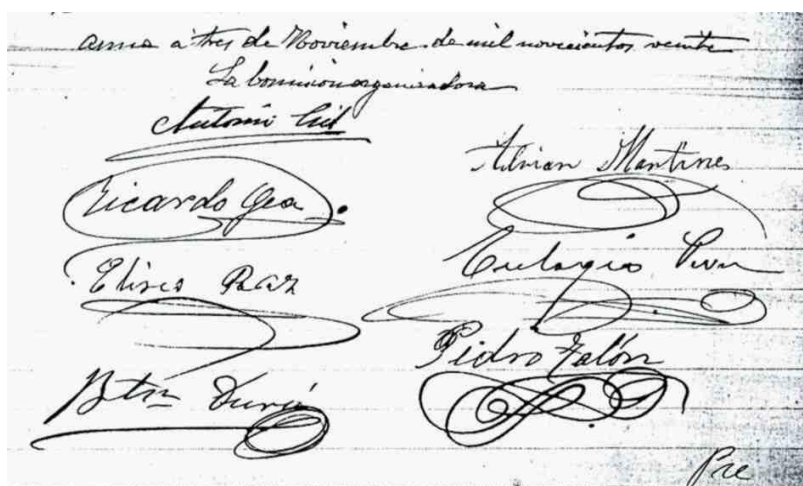 a tres de Noviembre de mil novecientos veinte
La Comision organizadora
Antonio Gil
Adrian Martines
Ricardo Gea
Eulogio
Eliseo Paz
Pedro Zalón
Btmé Durá
Pre